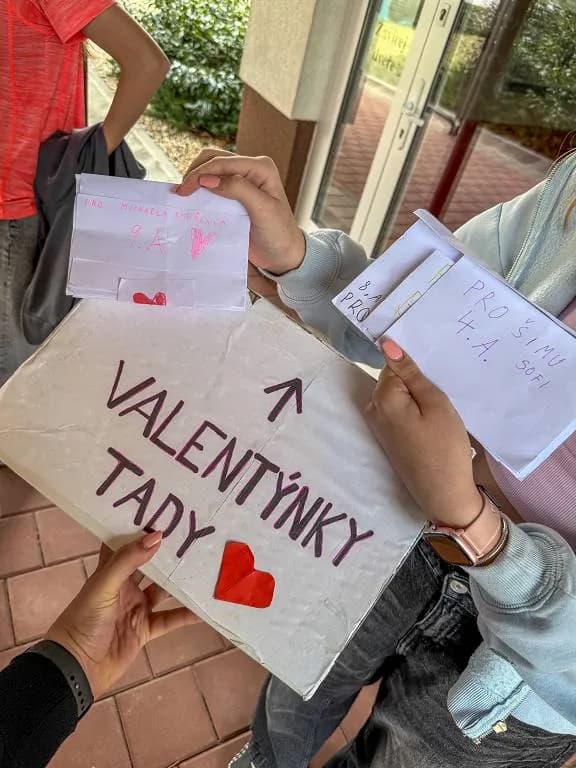 PRO MICHAELA
9.A
8.A
PRO
PRO ŠIMU
4.A. SOFI
↑
VALENTÝNKY
TADY